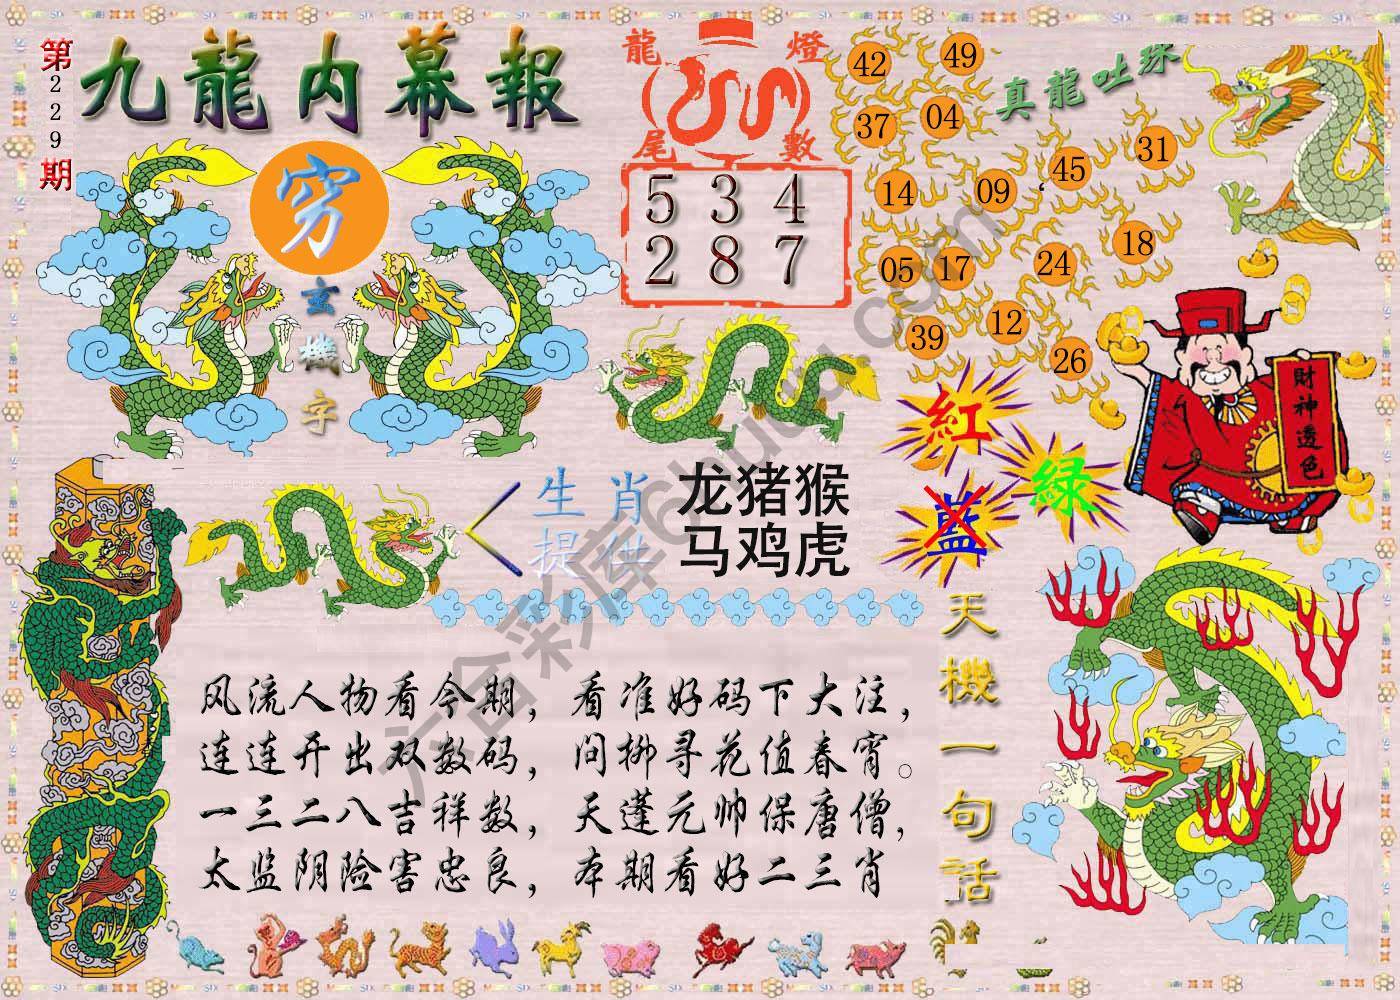 第229期
九龍内幕報
穷
玄機字
龍燈尾數
5 3 4
2 8 7
真龍吐珠
42 49
37 04
45 31
14 09
18
05 17 24
39 12
26
財神透色
紅
绿
蓝
生肖提供
龙猪猴
马鸡虎
天機一句話
风流人物看今期，看准好码下大注，
连连开出双数码，问柳寻花值春宵。
一三二八吉祥数，天蓬元帅保唐僧，
太监阴险害忠良，本期看好二三肖
六合彩库6huuu.com